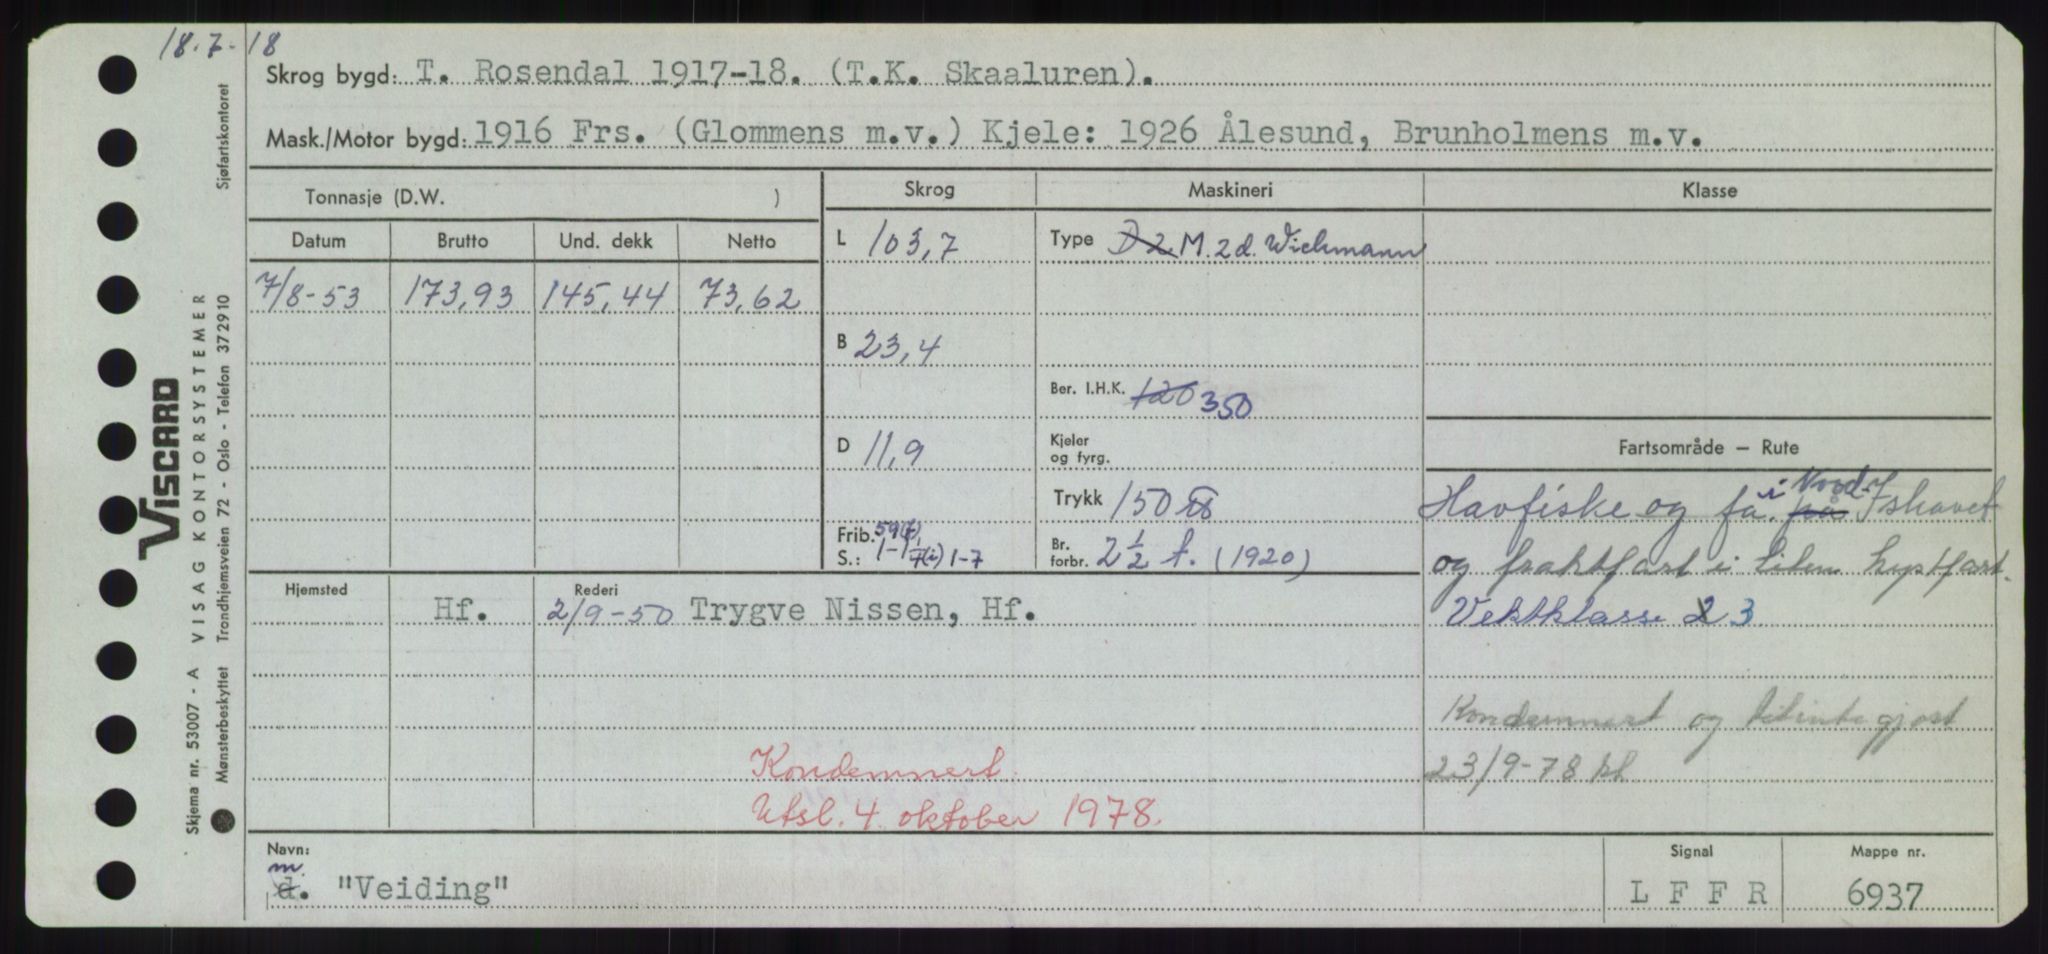 18.7-18
Skrog bygd: T. Rosendal 1917-18. (T.K. Skaaluren).
Mask./Motor bygd: 1916 Frs. (Glommens m.v.) Kjele: 1926 Ålesund, Brunholmens m.v.
Tonnasje (D.W. )
Skrog
Maskineri
Klasse
Datum
Brutto
Und. dekk
Netto
7/8-53
173,93
145,44
73,62
L 103,7
B 23,4
D 11,9
Frib. 59(f)
S.: 1-1 7(i) 1-7
Type D 2 M. 2 d. Wichmann
Ber. I.H.K. 120 350
Kjeler
og fyrg.
Trykk 150 ℔
Br.
forbr. 2 1/2 t. (1920)
Fartsområde – Rute
Havfiske og fa. på i Nord-Ishavet
og fraktfart i liten kystfart.
Vektklasse 2 3
Kondemnert og tilintegjort
23/9-78
Hjemsted
Rederi
Hf.
2/9-50 Trygve Nissen, Hf.
Kondemnert.
Utsl. 4. oktober 1978.
Navn:
m
d. "Veiding"
Signal
L F F R
Mappe nr.
6937
VISCARD
Skjema nr. 53007 - A VISAG KONTORSYSTEMER
Mønsterbeskyttet Trondhjemsveien 72 - Oslo - Telefon 372910 Sjøfartskontoret